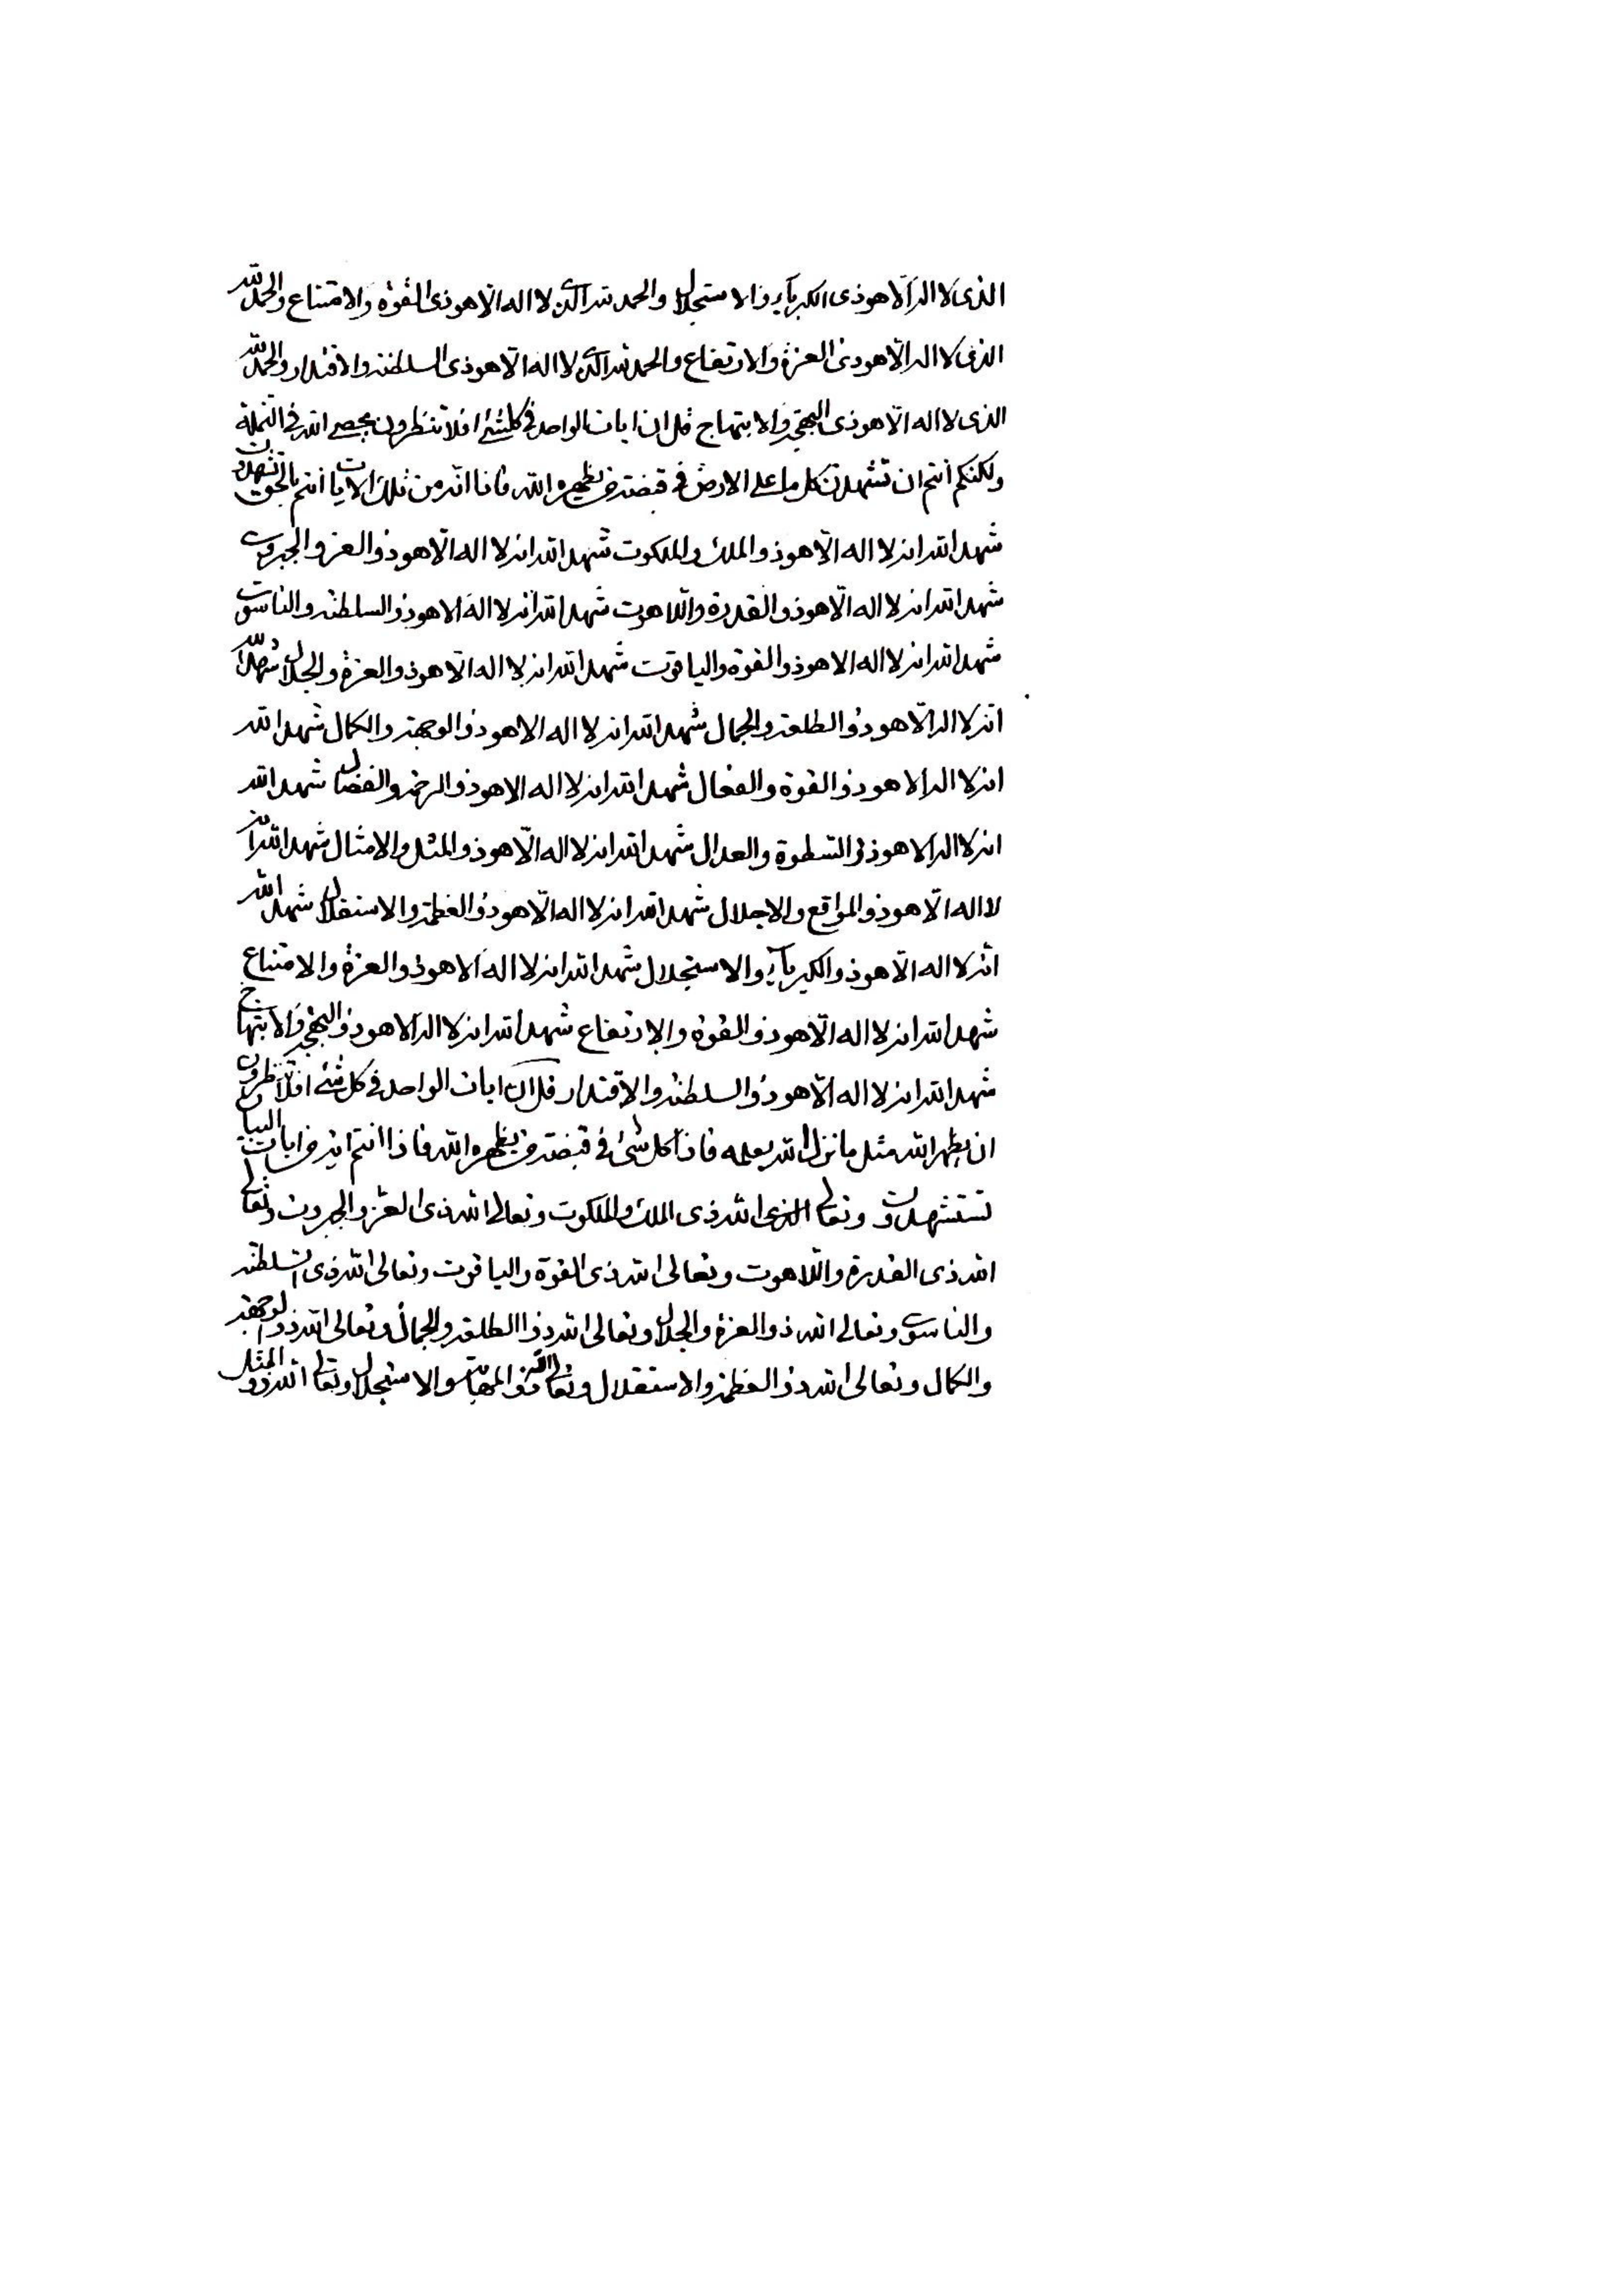 الذی لا اله الا هو ذی الکبریآء والاستجلال والحمد لله الذی لا اله الا هو ذی القوة والامتناع والحمد لله
الذی لا اله الا هو ذی العزة والارتفاع والحمد لله الذی لا اله الا هو ذی السلطنه والاقتدار والحمد لله
الذی لا اله الا هو ذی البهجة والابتهاج قل ان ایات الواحد فی کلشئ افلا تنظرون یحصی الله فی النملة
ولکنکم انتم ان تشهدن کل ما علی الارض فی قبضته من یظهره الله فاذا انه من تلک الایات انتم بالحق تشهدون
شهد الله انه لا اله الا هو ذو الملک والملکوت شهد الله انه لا اله الا هو ذو العز والجبروت
شهد الله انه لا اله الا هو ذو القدرة واللاهوت شهد الله انه لا اله الا هو ذو السلطنه والناسوت
شهد الله انه لا اله الا هو ذو القوة والیاقوت شهد الله انه لا اله الا هو ذو العزة والجلال شهد الله
انه لا اله الا هو ذو الطلعة والجمال شهد الله انه لا اله الا هو ذو الوجهة والکمال شهد الله
انه لا اله الا هو ذو القوة والفعال شهد الله انه لا اله الا هو ذو الرحمة والفضال شهد الله
انه لا اله الا هو ذو السطوة والعدال شهد الله انه لا اله الا هو ذو المثل والامثال شهد الله انه
لا اله الا هو ذو المواقع والاجلال شهد الله انه لا اله الا هو ذو العظمة والاستقلال شهد الله
انه لا اله الا هو ذو الکبریآء والاستجلال شهد الله انه لا اله الا هو ذو العزة والامتناع
شهد الله انه لا اله الا هو ذو القوة والارتفاع شهد الله انه لا اله الا هو ذو البهجة والابتهاج
شهد الله انه لا اله الا هو ذو السلطنة والاقتدار قل ان ایات الواحد فی کل شئ افلا تنظرون
ان یظهر الله مثل ما نزل الله بعلمه فاذا کل شئ فی قبضته من یظهره الله فاذا انتم من ایات البیان
تستشهدون وتعالی الله ذی الملک والملکوت وتعالی الله ذی العز والجبروت وتعالی
الله ذی القدرة واللاهوت وتعالی الله ذی القوة والیاقوت وتعالی الله ذی السلطنه
والناسوت وتعالی الله ذو العزة والجلال وتعالی الله ذو الطلعة والجمال وتعالی الله ذو الوجهة
والکمال وتعالی الله ذو العظمة والاستقلال وتعالی الله ذو المهابة والاستجلال وتعالی الله ذو المثل